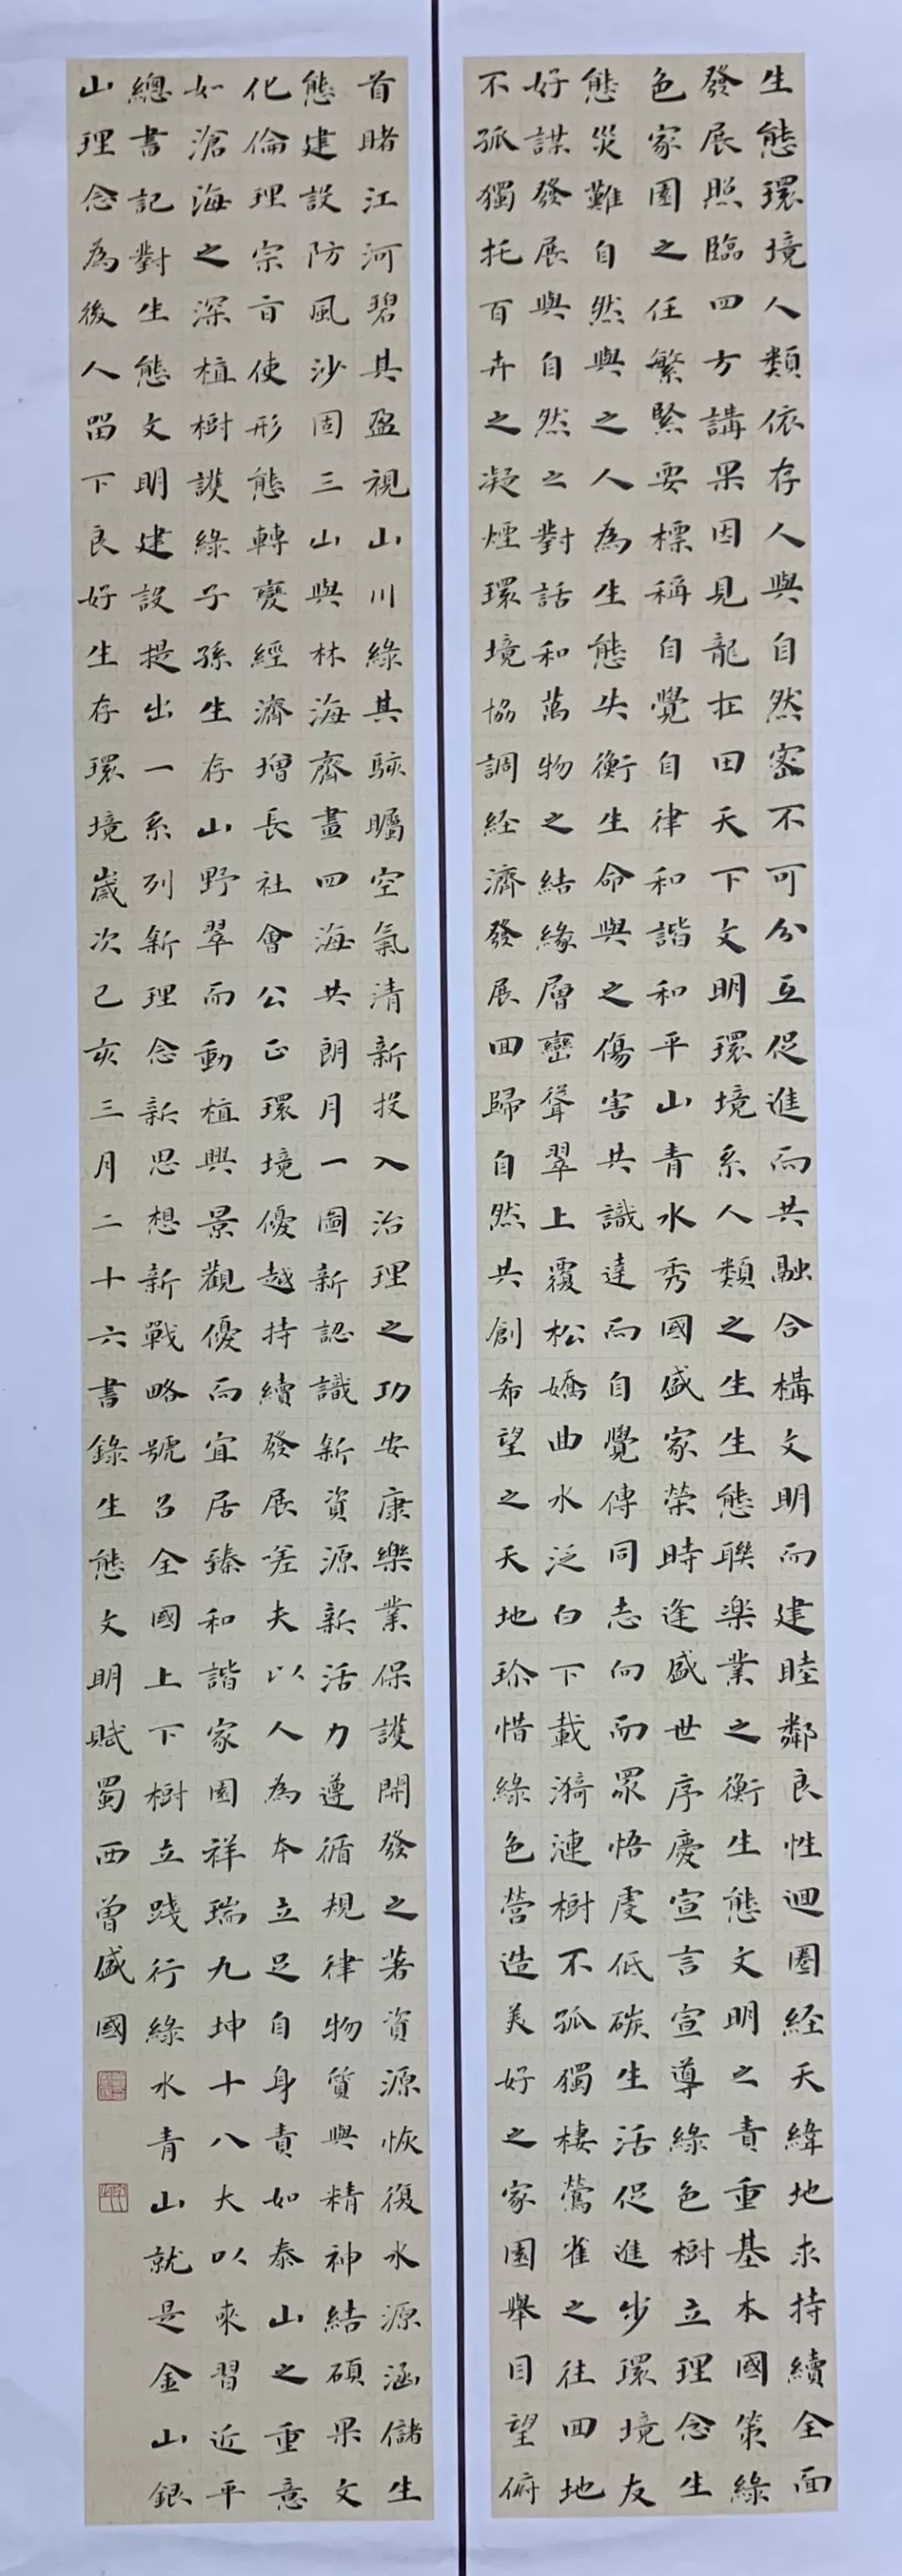 生態環境人類依存人與自然密不可分互促進而共融合構文明而建睦鄰良性迴圈経天緯地求持續全面
發展照臨四方講果因見龍在田天下文明環境系人類之生生態聯楽業之衡生態文明之責重基本國策綠
色家園之任繁緊要標稱自覺自律和諧和平山青水秀國盛家榮時逢盛世序慶宣言宣導綠色樹立理念生
態災難自然與之人為生態失衡生命與之傷害共識達而自覺傳同志向而眾悟虔低碳生活促進步環境友
好謀發展與自然之對話和萬物之結緣層巒聳翠上覆松嬌曲水泛白下載漪漣樹不孤獨棲鶯雀之往回地
不孤獨托百卉之凝煙環境協調経濟發展回歸自然共創希望之天地珍惜綠色營造美好之家園舉目望俯
首睹江河碧其盈視山川綠其駭矚空氣清新投入治理之功安康樂業保護開發之著資源恢復水源涵儲生
態建設防風沙固三山與林海齊畫四海共朗月一圖新認識新資源新活力遵循規律物質與精神結碩果文
化倫理宗旨使形態轉變經濟增長社會公正環境優越持續發展嗟夫以人為本立足自身責如泰山之重意
如滄海之深植樹護綠子孫生存山野翠而動植興景觀優而宜居臻和諧家園祥瑞九坤十八大以來習近平
總書記對生態文明建設提出一系列新理念新思想新戰略號召全國上下樹立踐行綠水青山就是金山銀
山理念為後人留下良好生存環境歲次己亥三月二十六書錄生態文明賦蜀西曾盛國